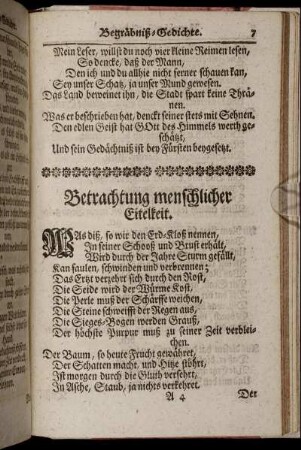 Begräbniß-Gedichte. 7
Mein Leser, willst du noch vier kleine Reimen lesen,
So dencke, daß der Mann,
Den ich und du allhie nicht ferner schauen kan,
Sey unser Schatz, ja unser Mund gewesen.
Das Land beweinet ihn, die Stadt spart keine Thrä-
nen.
Was er beschrieben hat, denckt seiner stets mit Sehnen.
Den edlen Geist hat GOtt des Himmels werth ge-
schätzt,
Und sein Gedächtniß ist bey Fürsten beygesetzt.
Betrachtung menschlicher
Eitelkeit.
WAs diß, so wir den Erd-Kloß nennen,
In seiner Schooß und Brust erhält,
Wird durch der Jahre Sturm gefällt,
Kan faulen, schwinden und verbrennen;
Das Ertzt verzehrt sich durch den Rost,
Die Seide wird der Würme Kost,
Die Perle muß der Schärffe weichen,
Die Steine schweifft der Regen aus,
Die Sieges-Bogen werden Grauß,
Der höchste Purpur muß zu seiner Zeit verblei-
chen.
Der Baum, so heute Frucht gewähret,
Der Schatten macht, und Hitze stöhrt,
Ist morgen durch die Gluth versehrt,
In Asche, Staub, ja nichts verkehret.
A 4 Der